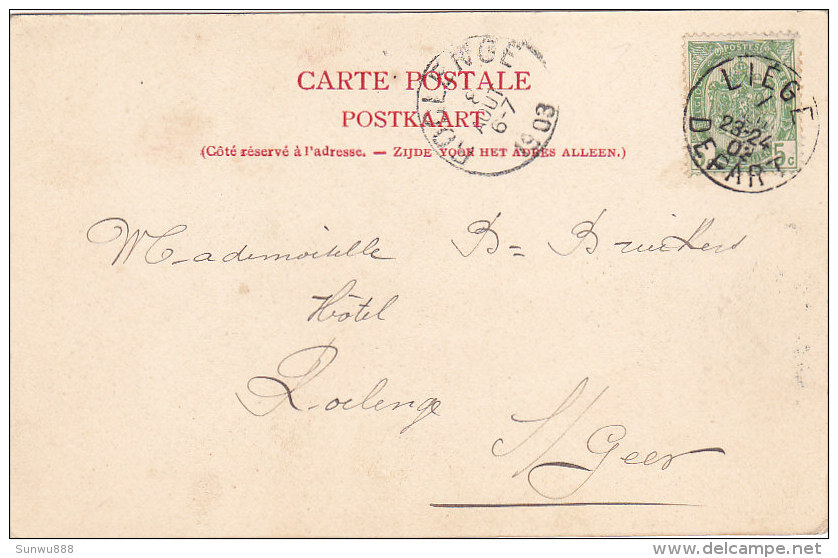 POSTES
CARTE POSTALE
POSTKAART
(Côté réservé à l'adresse. — ZIJDE VOOR HET ADRES ALLEEN.)
ROCLENGE
8
AOUT
6-7
1903
LIÉGE
7
23-24
03
DEPART
5 c
Mademoiselle B= Bruickers
Hôtel
Roclenge
S/ Geer
Sunwu888
delcampe.net